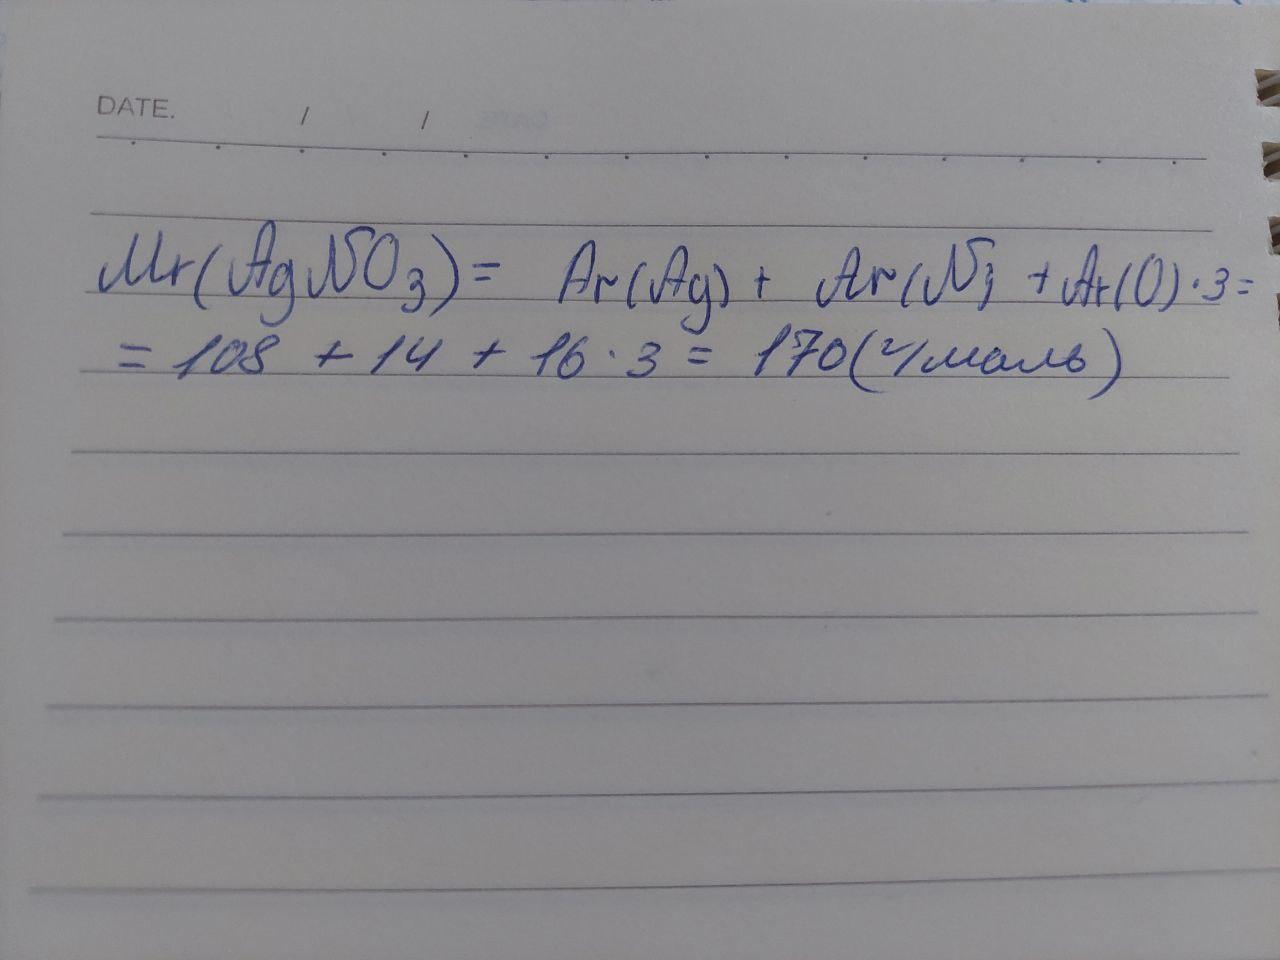 DATE. / /
Mr(AgNO₃) = Ar(Ag) + Ar(N) + Ar(O)·3 =
= 108 + 14 + 16·3 = 170(г/моль)